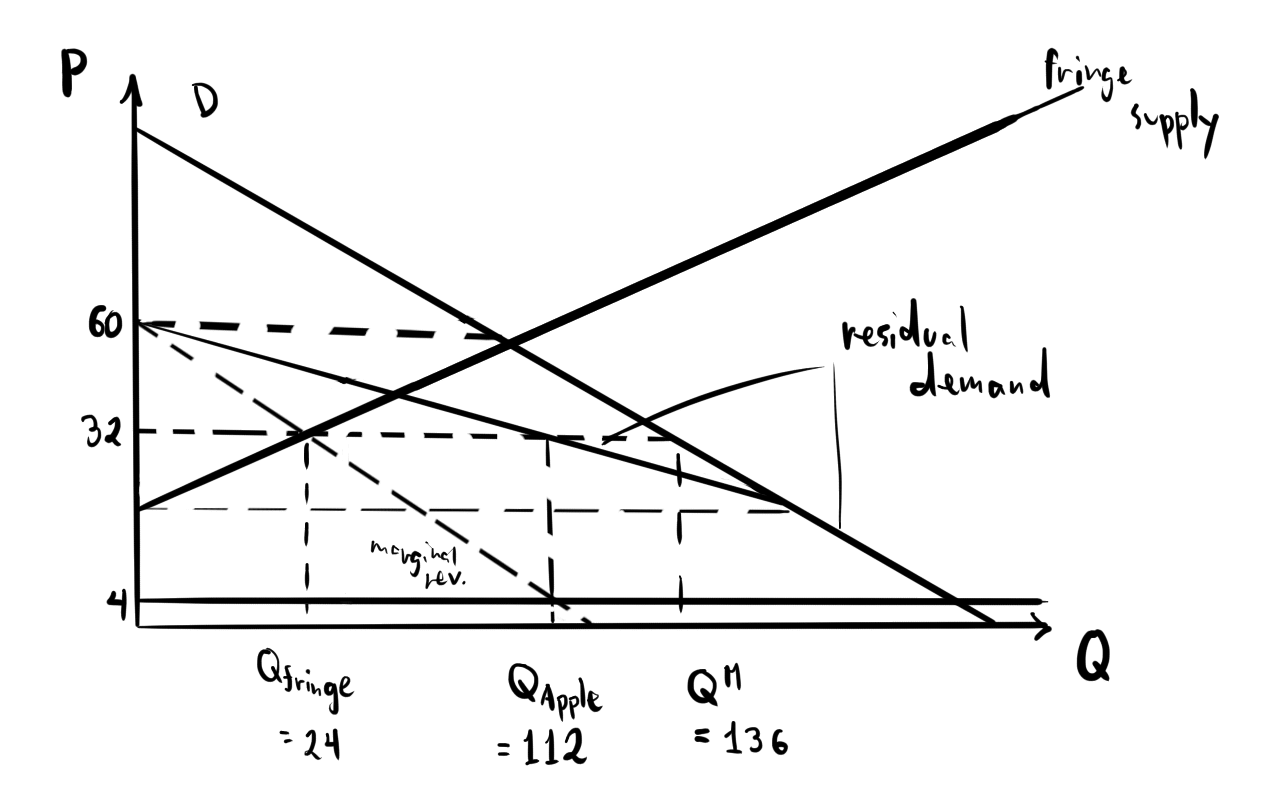 P
D
fringe
supply
60
residual
demand
32
marginal
rev.
4
Q
Qfringe
= 24
QApple
= 112
Q^M
= 136